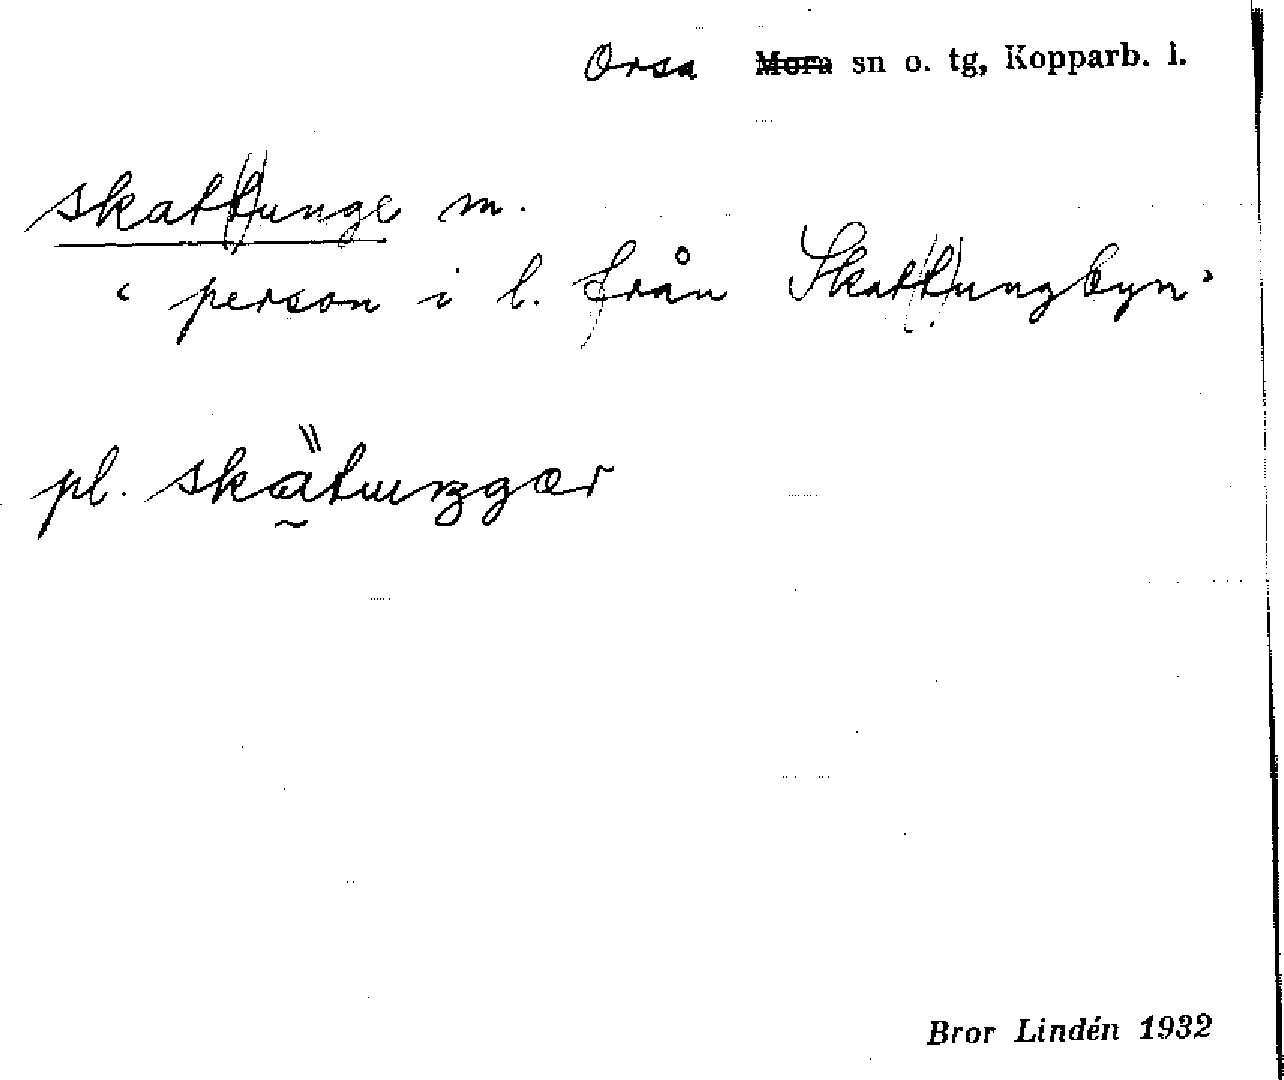 Orsa Mora sn o. tg, Kopparb. l.
skat(t)unge m.
‘person i l. från Skat(t)ungbyn’
pl. skä̰tuŋgær
Bror Lindén 1932